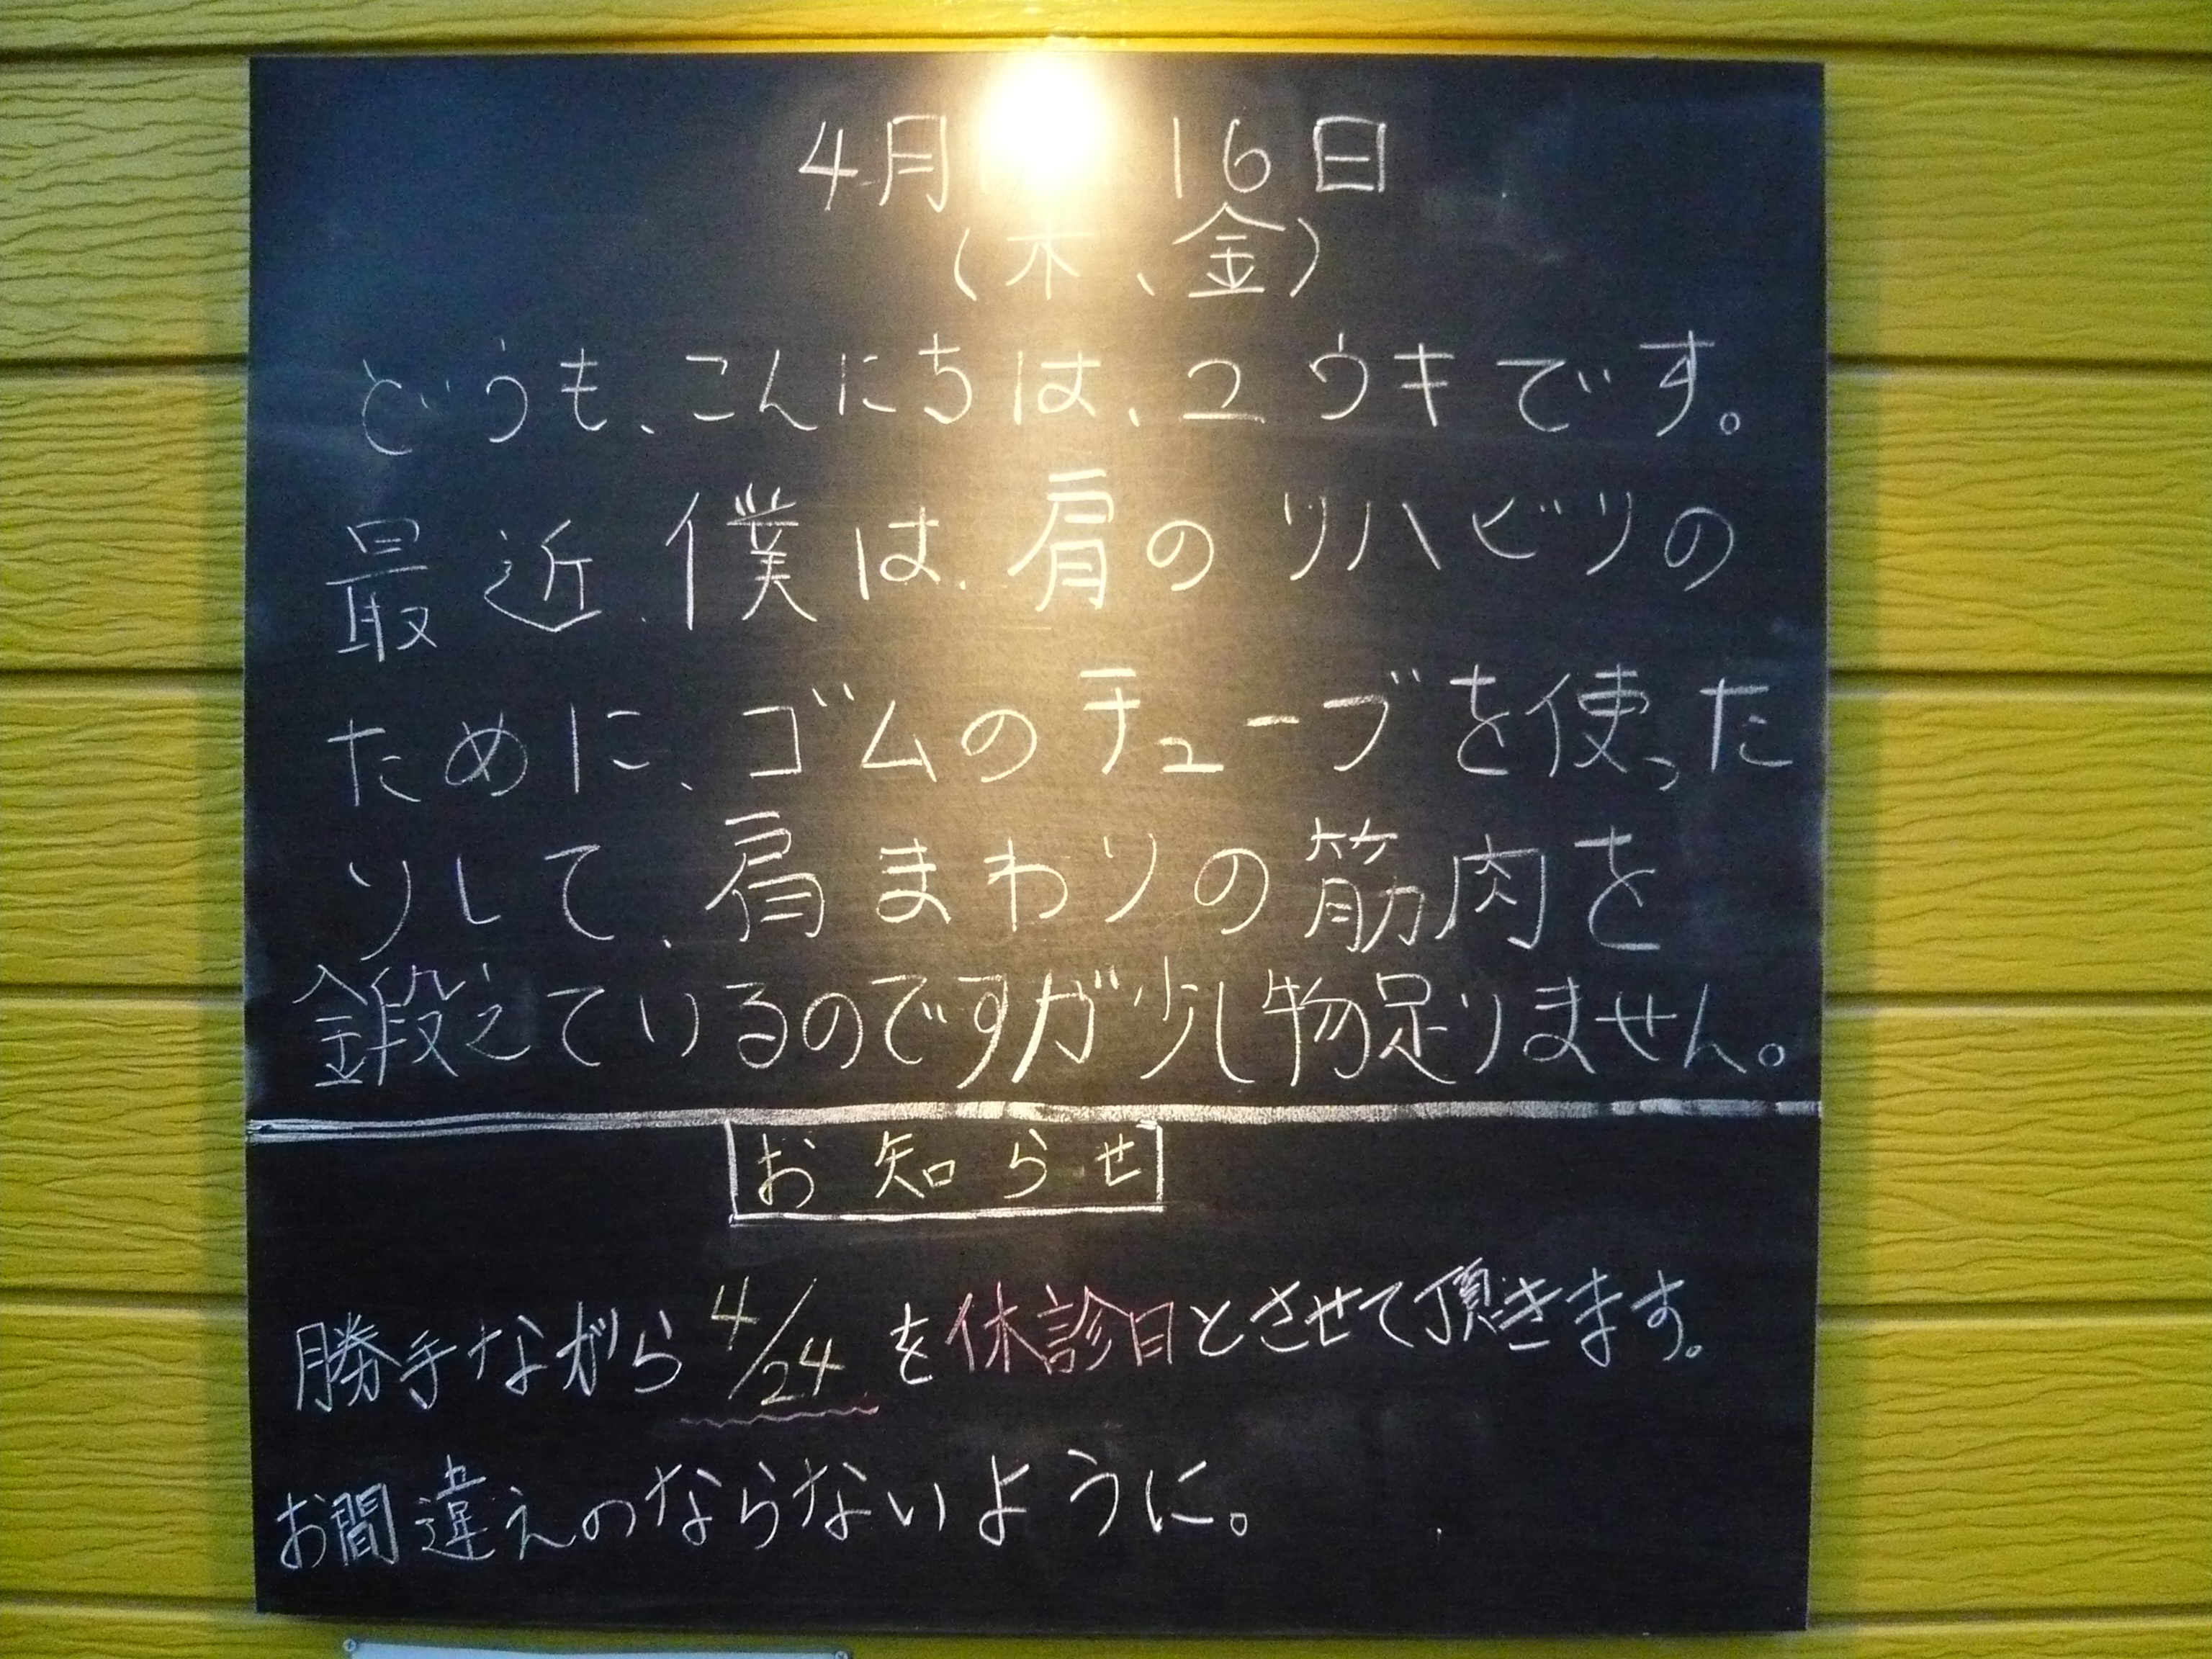 4月 16日
(木、金)
どうも、こんにちは、ユウキです。
最近、僕は、肩のリハビリの
ために、ゴムのチューブを使った
りして、肩まわりの筋肉を
鍛えているのですが少し物足りません。
お知らせ
勝手ながら 4/24 を休診日とさせて頂きます。
お間違えのならないように。